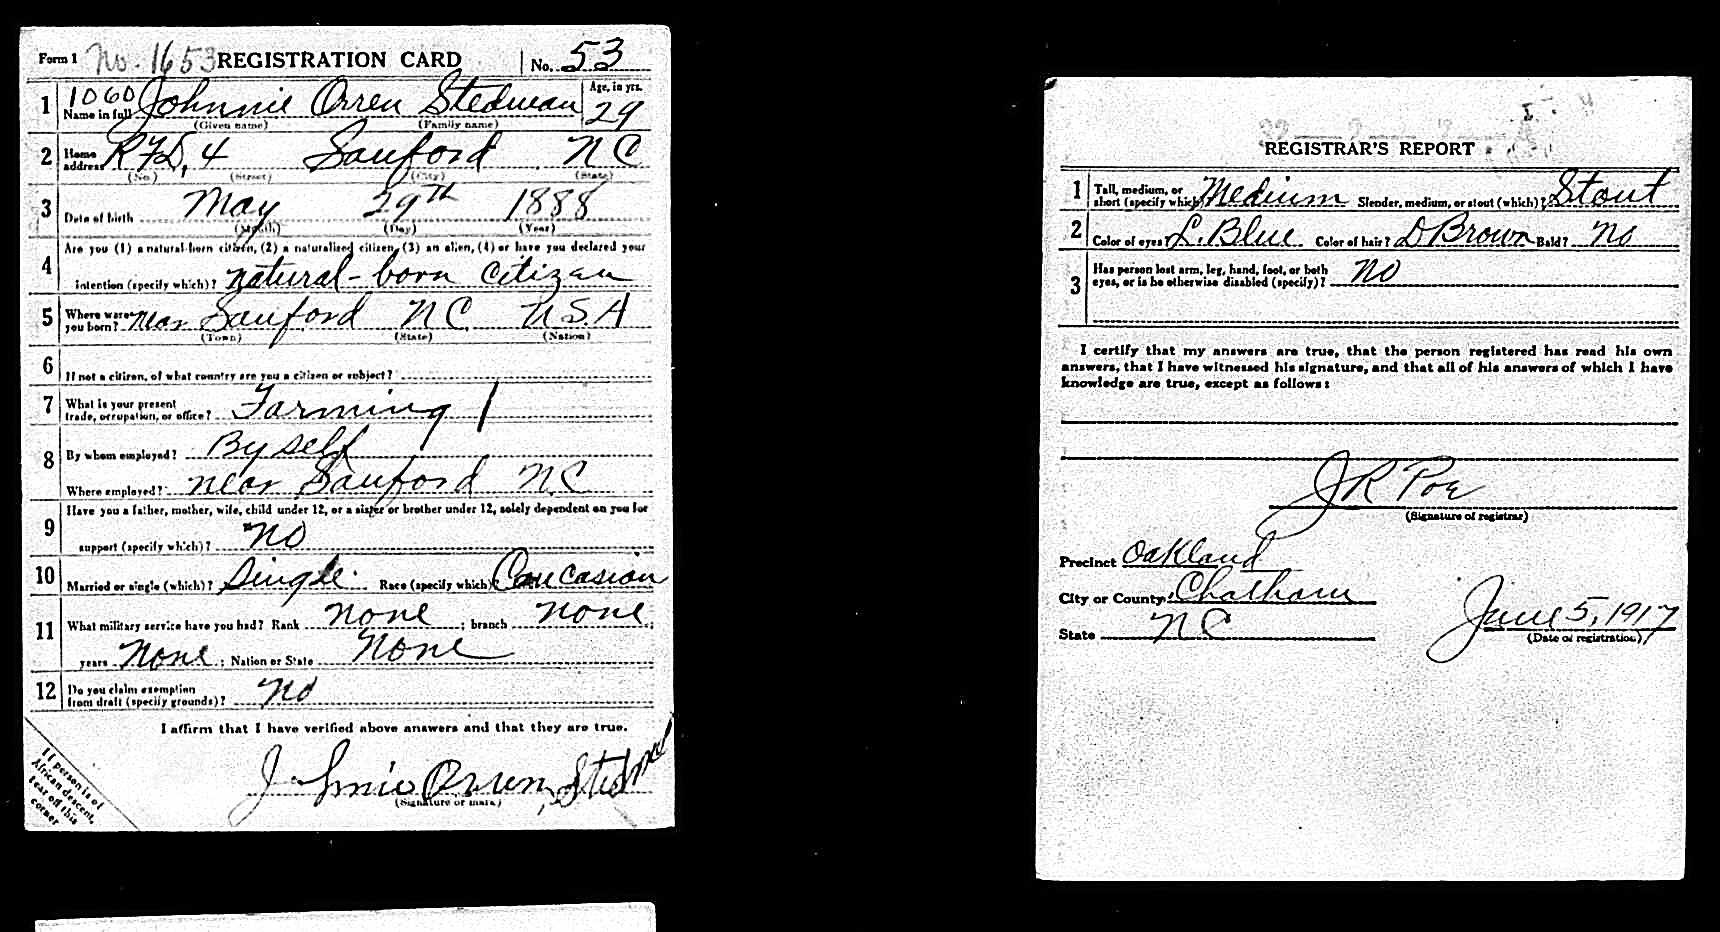 Form 1 No. 1653 REGISTRATION CARD No. 53
1 1060 Name in full Johnnie Orren Stedman Age, in yrs. 29
(Given name) (Family name)
2 Home address RFD, 4 Sanford NC
(No.) (Street) (City) (State)
3 Date of birth May 29th 1888
(Month) (Day) (Year)
Are you (1) a natural-born citizen, (2) a naturalized citizen, (3) an alien, (4) or have you declared your
4 intention (specify which)? natural-born citizan
5 Where were you born? near Sanford NC USA
(Town) (State) (Nation)
6 If not a citizen, of what country are you a citizen or subject?
7 What is your present trade, occupation, or office? Farming
8 By whom employed? By self
Where employed? near Sanford NC
9 Have you a father, mother, wife, child under 12, or a sister or brother under 12, solely dependent on you for
support (specify which)? No
10 Married or single (which)? Single. Race (specify which)? Caucasion
11 What military service have you had? Rank none ; branch none ;
years None ; Nation or State None
12 Do you claim exemption from draft (specify grounds)? No
I affirm that I have verified above answers and that they are true.
Johnie Orren Stedman
(Signature or mark)
If person is of
African descent,
tear off this
corner
REGISTRAR'S REPORT
1 Tall, medium, or short (specify which)? Medium Slender, medium, or stout (which)? Stout
2 Color of eyes? L. Blue Color of hair? D Brown Bald? No
3 Has person lost arm, leg, hand, foot, or both eyes, or is he otherwise disabled (specify)? No
I certify that my answers are true, that the person registered has read his own
answers, that I have witnessed his signature, and that all of his answers of which I have
knowledge are true, except as follows:
JR Poe
(Signature of registrar)
Precinct Oakland
City or County Chatham
State NC
June 5, 1917
(Date of registration)